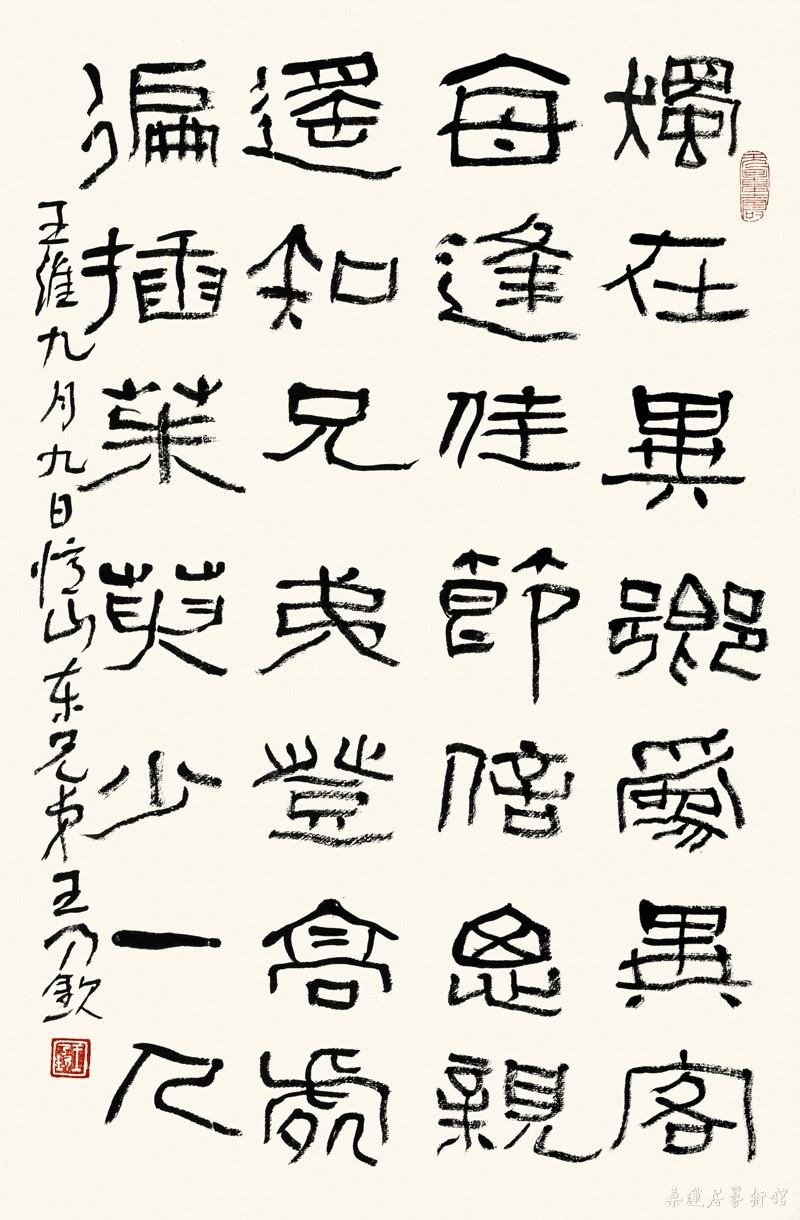 獨在異鄉爲異客
每逢佳節倍思親
遥知兄弟登高處
徧插茱萸少一人
王維九月九日憶山东兄弟王乃欽
桑蓮居藝術館